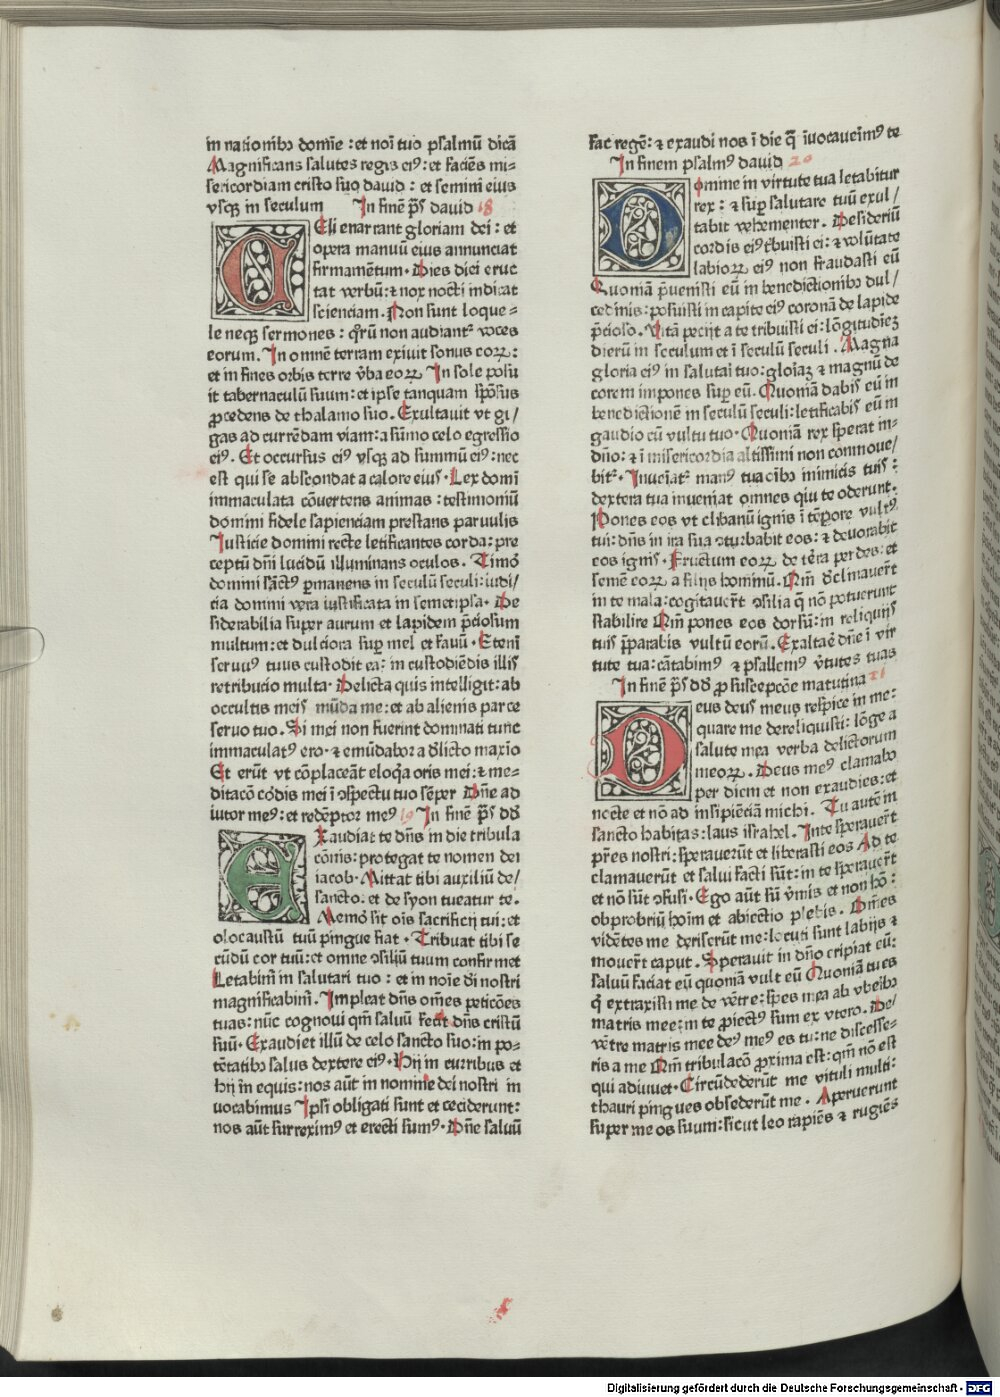 in nationibꝰ domĩe : et noĩ tuo psalmũ dicã
Magnificans salutes regis eiꝰ: et faciẽs mi-
sericordiam cristo suo dauid : et semini eius
vsqꝫ in seculum In finẽ p̃s dauid 18
CEli enarrant gloriam dei : et
opera manuũ eius annunciat
firmamẽtum. Dies diei eruc
tat verbũ: ⁊ nox nocti indicat
scienciam. Non sunt loque-
le neqꝫ sermones : qꝛũ non audiantᷣ voces
eorum. In omnẽ terram exiuit sonus eoꝝ:
et in fines orbis terre v̉ba eoꝝ In sole posu
it tabernaculũ suum: et ipse tanquam spõsus
ꝓcedens de thalamo suo. Exultauit vt gi/
gas ad currẽdam viam: a sũmo celo egressio
eiꝰ. Et occursus eiꝰ vsqꝫ ad summũ eiꝰ: nec
est qui se abscondat a calore eius. Lex domĩ
immaculata cõuertens animas : testimoniũ
domini fidele sapienciam prestans paruulis
Iusticie domini recte letificantes corda: pre
ceptũ dñi lucidũ illuminans oculos. Timoᷣ
domini sãctꝰ ꝑmanens in seculũ seculi: iudi/
cia domini vera iustificata in semetipsa. De
siderabilia super aurum et lapidem p̃ciosum
multum: et dulciora suꝑ mel et fauũ. Etenĩ
seruus tuus custodit ea: in custodiẽdis illis
retribucio multa. Delicta quis intelligit: ab
occultis meis mũda me: et ab alienis parce
seruo tuo. Si mei non fuerint dominati tunc
immaculatꝰ ero. ⁊ emũdabor a dᷣlicto maxĩo
Et erũt vt cõplaceãt eloq̃a oris mei: ⁊ me-
ditacõ coᷣdis mei ĩ ꝯspectu tuo sẽper Dñe ad
iutor meꝰ: et redẽptor meꝰ 19 In finẽ p̃s dd̉
EXaudiat te dñs in die tribula
cõnis: protegat te nomen dei
iacob. Mittat tibi auxiliũ de/
sancto: et de syon tueatur te.
Memoᷣ sit oĩs sacrificij tui: et
olocaustũ tuũ pingue fiat. Tribuat tibi se
cũdũ cor tuũ: et omne ꝯsiliũ tuum confirmet
Letabim̃ in salutari tuo : et in noĩe di nostri
magnificabim̃. Impleat dñs om̃es peticões
tuas: nũc cognoui qm̃ saluũ fecit dñs cristũ
suũ. Exaudiet illũ de celo sancto suo: in po-
tẽtatibꝰ salus dextere eiꝰ. Hij in curribus et
hij in equis: nos aũt in nomine dei nostri in
uocabimus Ipsi obligati sunt et ceciderunt:
nos aũt surreximꝰ et erecti sumꝰ. Dñe saluũ
fac regẽ: ⁊ exaudi nos ĩ die q̃ ĩuocaueĩmꝰ te
In finem psalmꝰ dauid 20
DOmine in virtute tua letabitur
rex : ⁊ suꝑ salutare tuũ exul/
tabit vehementer. Desideriũ
cordis eiꝰ tᷣbuisti ei: ⁊ volũtate
labioꝝ eiꝰ non fraudasti eũ
Quoniã p̃uenisti eũ in benedictionibꝰ dul/
cedinis: posuisti in capite eiꝰ coronã de lapide
p̃cioso. Vitã petijt a te tribuisti ei: lõgitudieꝫ
dierũ in seculum et ĩ seculũ seculi. Magna
gloria eiꝰ in salutaĩ tuo: gloĩaꝫ ⁊ magnũ de
corem impones suꝑ eũ. Quoniã dabis eũ in
benedictionẽ in seculũ seculi: letificabis eũ in
gaudio cũ vultu tuo. Quoniã rex sperat in-
dño: ⁊ ĩ misericordia altissimi non commoue/
bitᷣ. Inueĩatᷣ manꝰ tua cibꝰ inimicis tuis :
dextera tua inueniat omnes qui te oderunt.
Pones eos vt clibanũ ignis ĩ tẽpore vultꝰ
tui: dñs in ira sua ꝯturbabit eos: ⁊ deuorabit
eos ignis. Fructum eoꝝ de tẽra perdes: et
semẽ eoꝝ a filijs hominũ. Qm̃ dᷣclinauer̃t
in te mala: cogitauer̃t ꝯsilia q̃ nõ potuerunt
stabilire Qm̃ pones eos dorsũ: in reliquijs
tuis p̃parabis vultũ eorũ. Exaltaᷣe dñe ĩ vir
tute tua: cãtabimꝰ ⁊ psallemꝰ v̉tutes tuas
In finẽ p̃s dd̉ ꝓ suscepcõe matutina 21
DEus deus meus respice in me:
quare me dereliquisti: lõge a
salute mea verba delictorum
meoꝝ. Deus meꝰ clamabo
per diem et non exaudies: et
nocte et nõ ad insipiẽciã michi. Tu autẽ in
sancto habitas: laus israhel. In te sperauer̃t
pr̃es nostri: sperauerũt et liberasti eos Ad te
clamauerũt et salui facti sũt: in te sperauer̃t
et nõ sũt ꝯfusi. Ego aũt sũ v̉mis et non hõ:
obprobriũ hoĩm et abiectio plebis. Om̃es
vidẽtes me deriserũt me: locuti sunt labijs ⁊
mouer̃t caput. Sperauit in dño eripiat eũ:
saluũ faciat eũ quoniã vult eũ Quoniã tu es
q̃ extraxisti me de vẽtre: spes mea ab vberibꝰ
matris mee: in te ꝓiectꝰ sum ex vtero. De/
vẽtre matris mee deꝰ meꝰ es tu: ne discesse-
ris a me Qm̃ tribulacõ ꝓxima est: qm̃ nõ est
qui adiuuet. Circũdederũt me vituli multi:
thauri pingues obsederũt me. Aperuerunt
super me os suum: sicut leo rapiẽs ⁊ rugiẽs
Digitalisierung gefördert durch die Deutsche Forschungsgemeinschaft - DFG